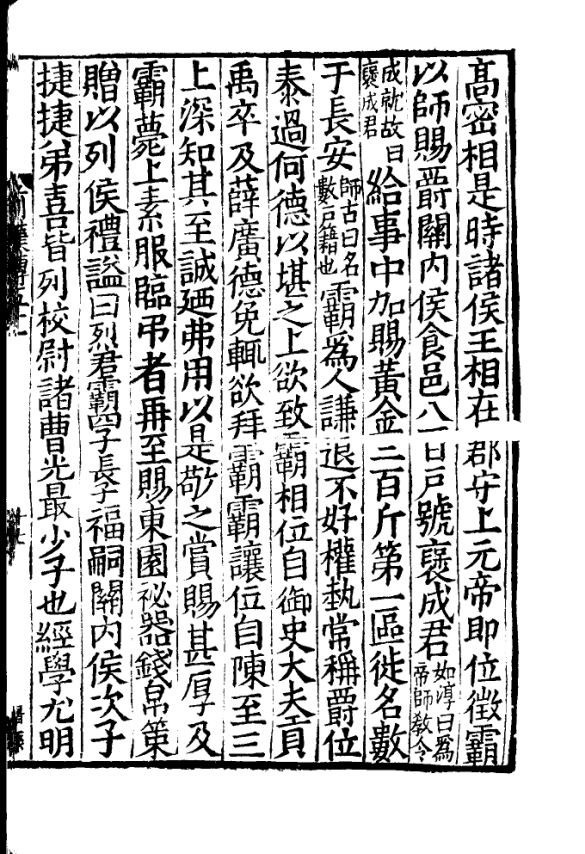 髙密相是時諸侯王相在郡守上元帝即位徵霸
以師賜爵關内侯食邑八百户號襃成君如淳曰為帝師教令
成就故曰襃成君給事中加賜黃金二百斤第一區徙名數
于長安師古曰名數户籍也霸為人謙退不好權埶常稱爵位
泰過何德以堪之上欲致霸相位自御史大夫貢
禹卒及薛廣德免輒欲拜霸霸讓位自陳至三
上深知其至誠廼弗用以是敬之賞賜甚厚及
霸薨上素服臨弔者再至賜東園祕器錢帛策
贈以列侯禮謚曰烈君霸四子長子福嗣關内侯次子
捷捷弟喜皆列校尉諸曹光最少子也經學尤明